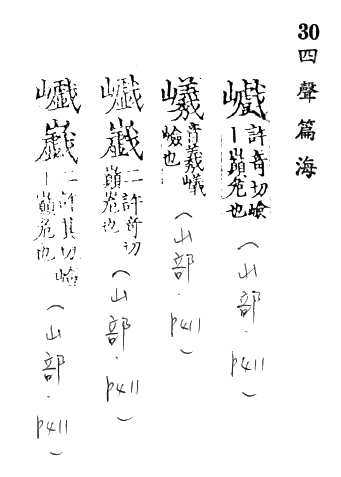 30 四聲篇海
巇 許奇切嶮
丨巔危也
(山部.p411)
㠢 音羲㠢
嶮也
(山部.p411)
二許奇切
巔危也
(山部.p411)
二許其切嶮
丨巔危也
(山部.p411)